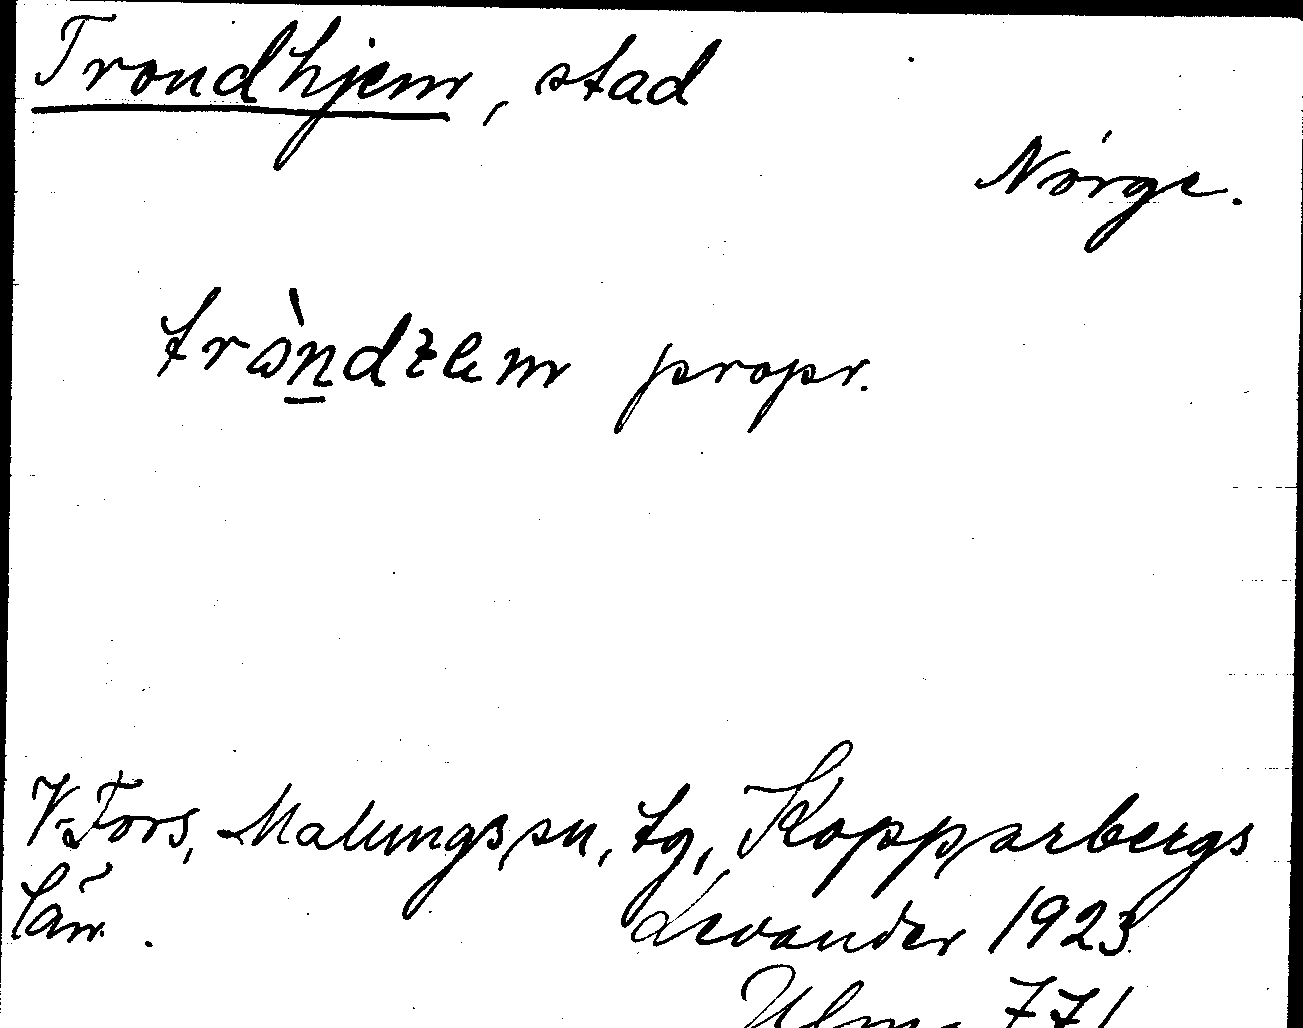 Trondhjem, stad
Norge.
propr.
V. Fors, Malungs sn, tg, Kopparbergs
län.
Levander 1923
771